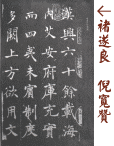 ←褚遂良 倪寬贊
漢興六十餘載海
內艾安府庫充實
而四夷未賓制度
多闕上方欲用文